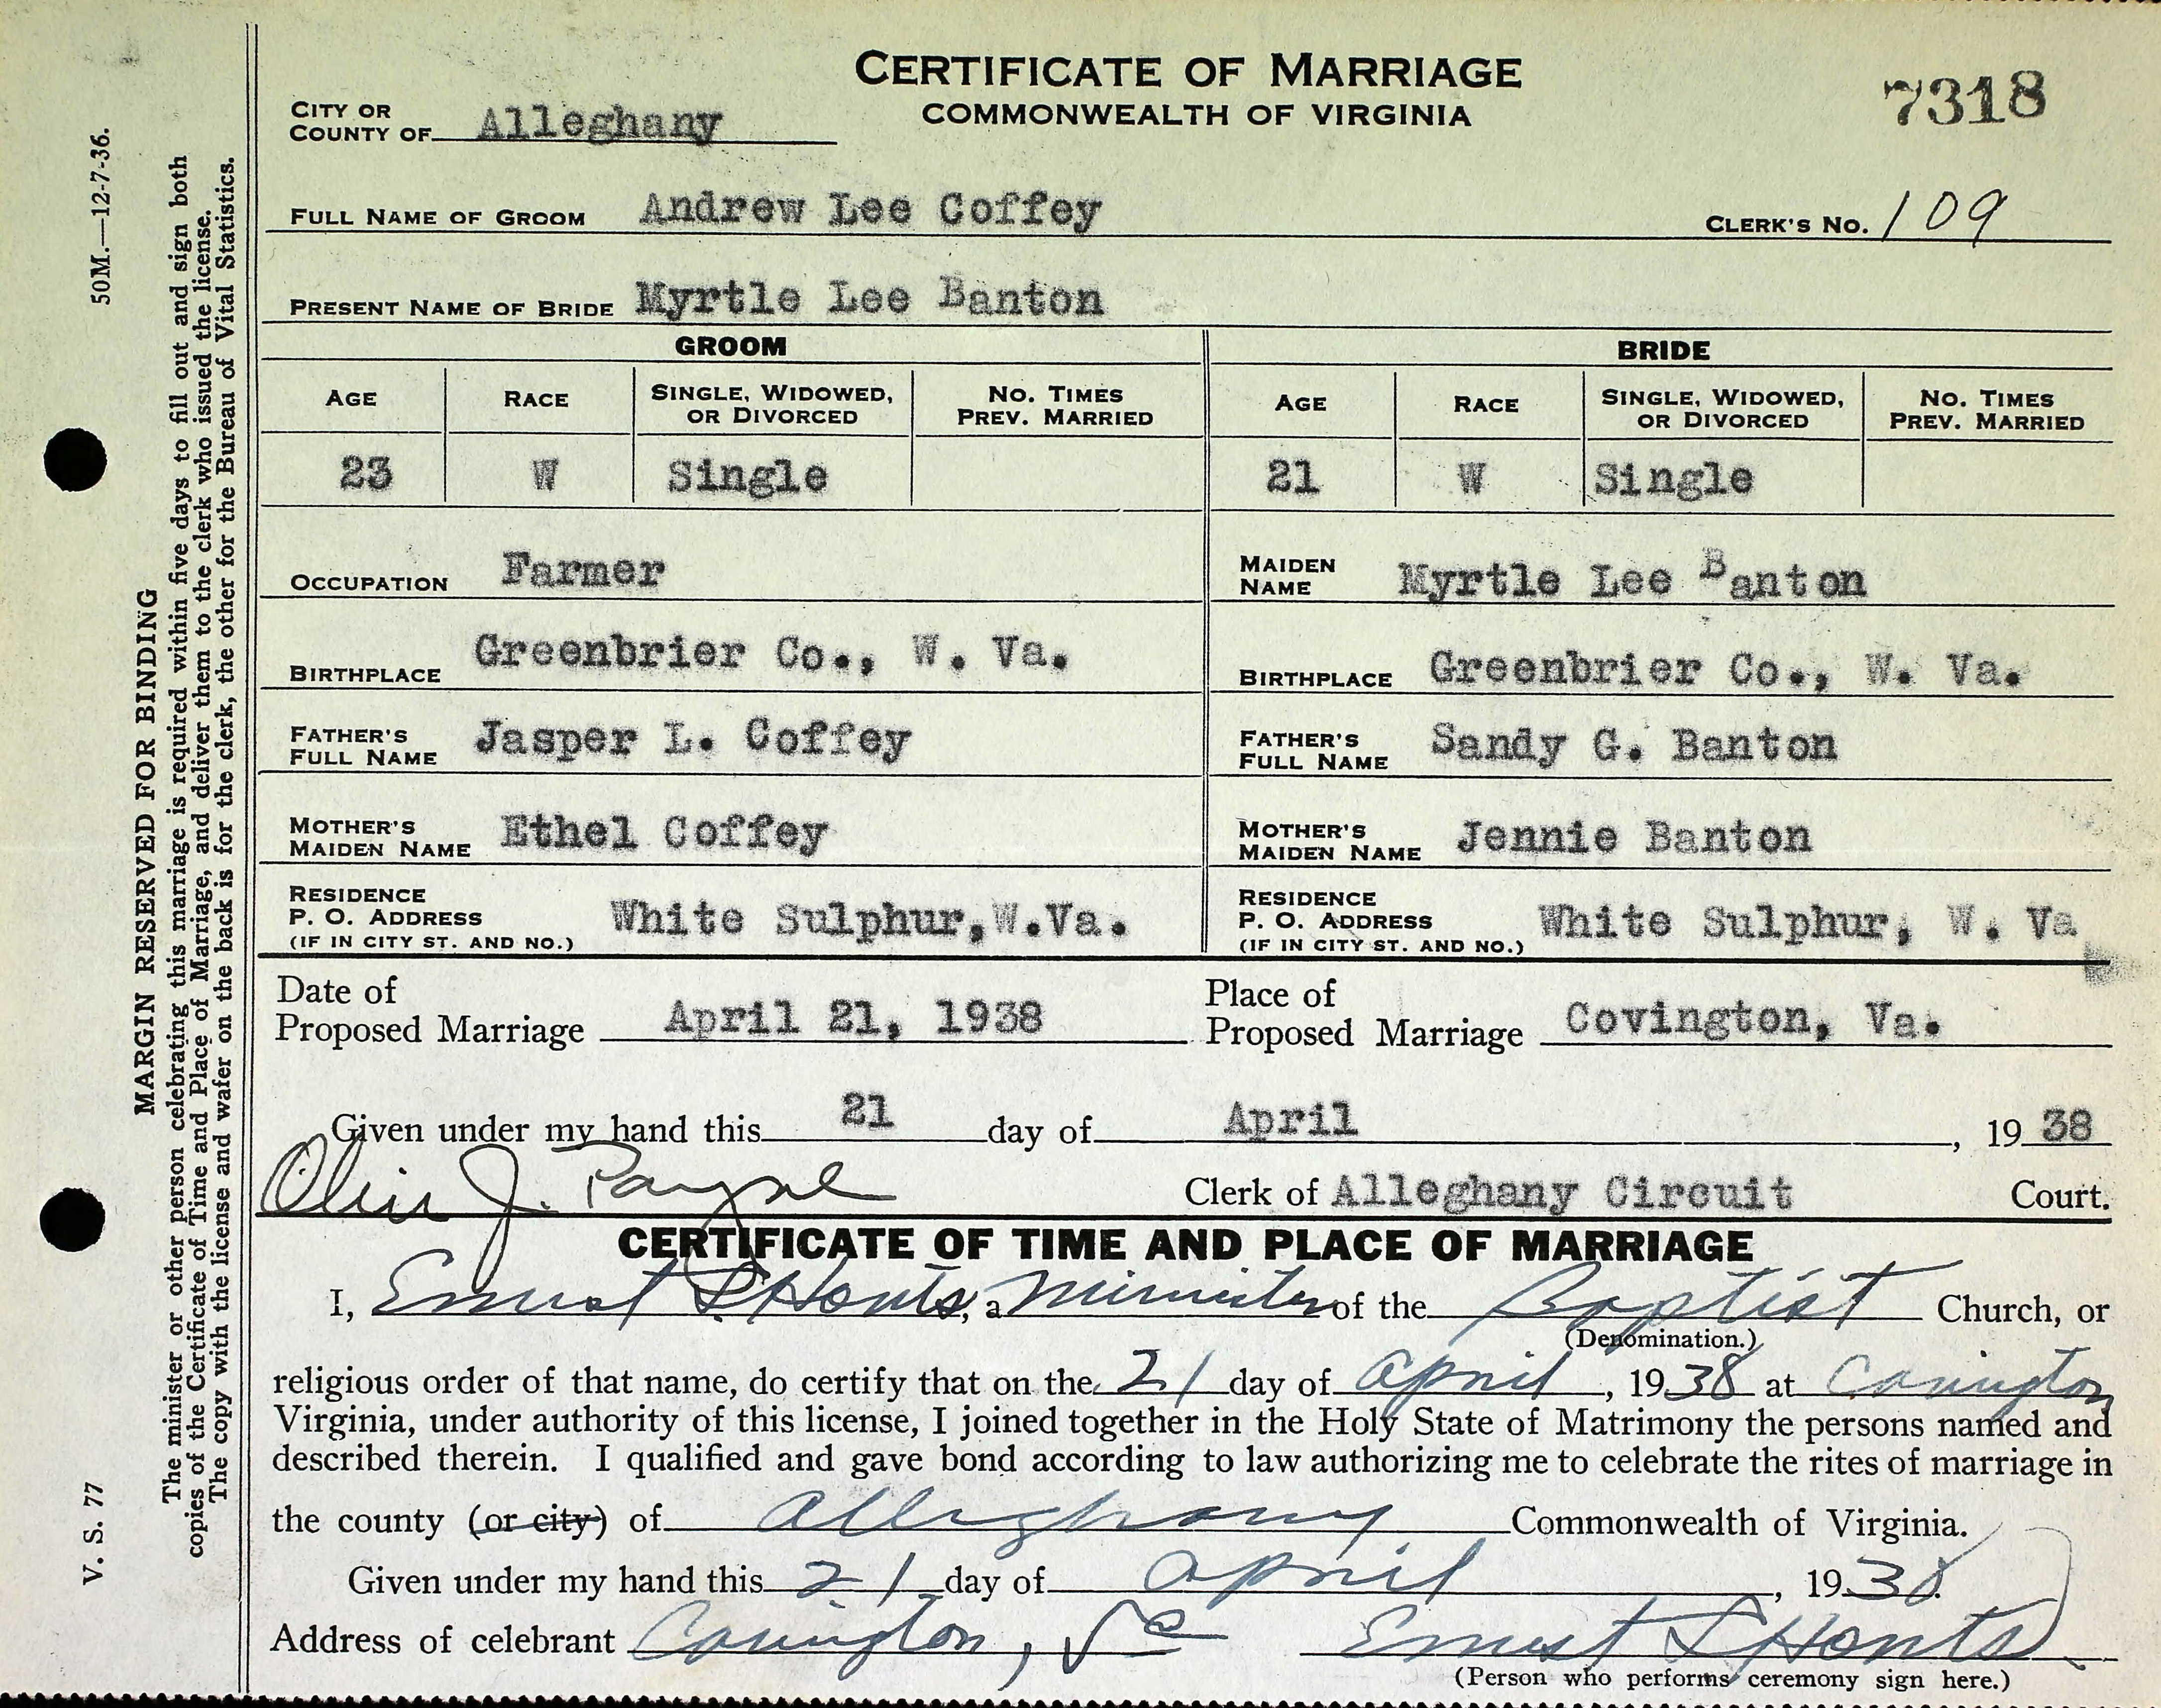 CERTIFICATE OF MARRIAGE
COMMONWEALTH OF VIRGINIA
7318
CITY OR
COUNTY OF Alleghany
FULL NAME OF GROOM Andrew Lee Coffey CLERK'S NO. 109
PRESENT NAME OF BRIDE Myrtle Lee Banton
GROOM BRIDE
AGE RACE SINGLE, WIDOWED, OR DIVORCED NO. TIMES PREV. MARRIED AGE RACE SINGLE, WIDOWED, OR DIVORCED NO. TIMES PREV. MARRIED
23 W Single 21 W Single
OCCUPATION Farmer
MAIDEN NAME Myrtle Lee Banton
BIRTHPLACE Greenbrier Co., W. Va.
BIRTHPLACE Greenbrier Co., W. Va.
FATHER'S FULL NAME Jasper L. Coffey
FATHER'S FULL NAME Sandy G. Banton
MOTHER'S MAIDEN NAME Ethel Coffey
MOTHER'S MAIDEN NAME Jennie Banton
RESIDENCE P. O. ADDRESS (IF IN CITY ST. AND NO.) White Sulphur, W.Va.
RESIDENCE P. O. ADDRESS (IF IN CITY ST. AND NO.) White Sulphur, W. Va
Date of Proposed Marriage April 21, 1938
Place of Proposed Marriage Covington, Va.
Given under my hand this 21 day of April, 1938
Olin J. Payne Clerk of Alleghany Circuit Court.
CERTIFICATE OF TIME AND PLACE OF MARRIAGE
I, Ernest L Honts, a Minister of the Baptist Church, or
(Denomination.)
religious order of that name, do certify that on the 21 day of April, 1938 at Covington
Virginia, under authority of this license, I joined together in the Holy State of Matrimony the persons named and
described therein. I qualified and gave bond according to law authorizing me to celebrate the rites of marriage in
the county (or city) of Alleghany Commonwealth of Virginia.
Given under my hand this 21 day of April, 1938
Address of celebrant Covington, Va Ernest L Honts
(Person who performs ceremony sign here.)
50M.—12-7-36.
V. S. 77
MARGIN RESERVED FOR BINDING
The minister or other person celebrating this marriage is required within five days to fill out and sign both
copies of the Certificate of Time and Place of Marriage, and deliver them to the clerk who issued the license.
The copy with the license and wafer on the back is for the clerk, the other for the Bureau of Vital Statistics.